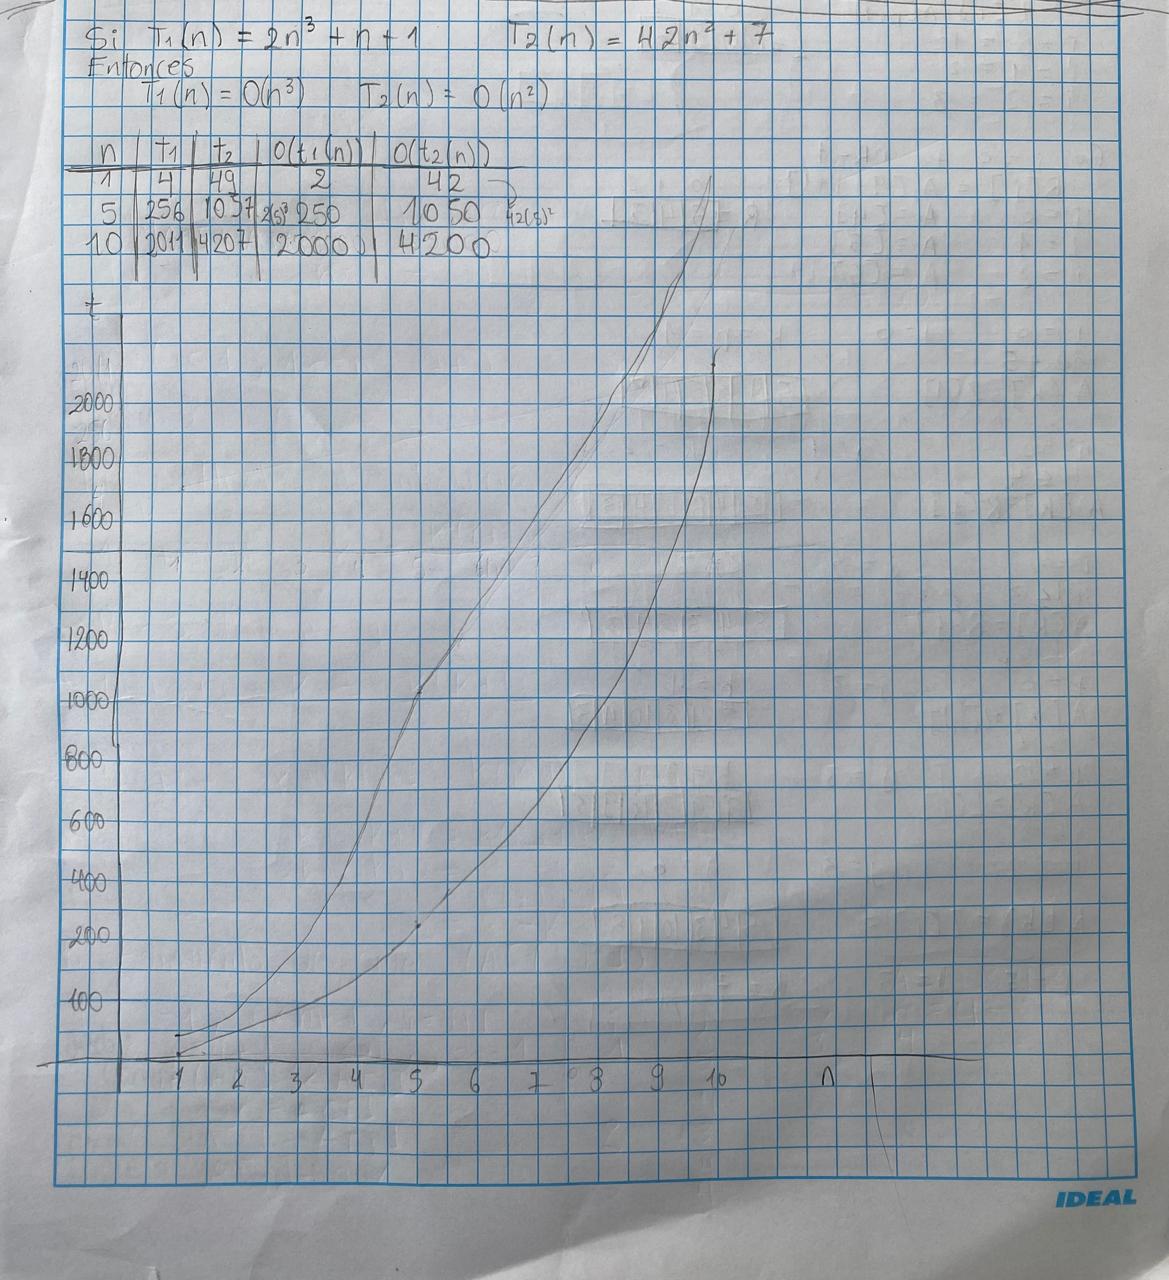 Si T₁(n) = 2n³ + n + 1 T₂(n) = 42n² + 7
Entonces
T₁(n) = O(n³) T₂(n) = O(n²)
n t₁ t₂ O(t₁(n)) O(t₂(n))
1 4 49 2 42
5 256 1057 2(5)³ 250 1050 42(5)²
10 2011 4207 2000 4200
t
2000
1800
1600
1400
1200
1000
800
600
400
200
100
1 2 3 4 5 6 7 8 9 10 n
IDEAL